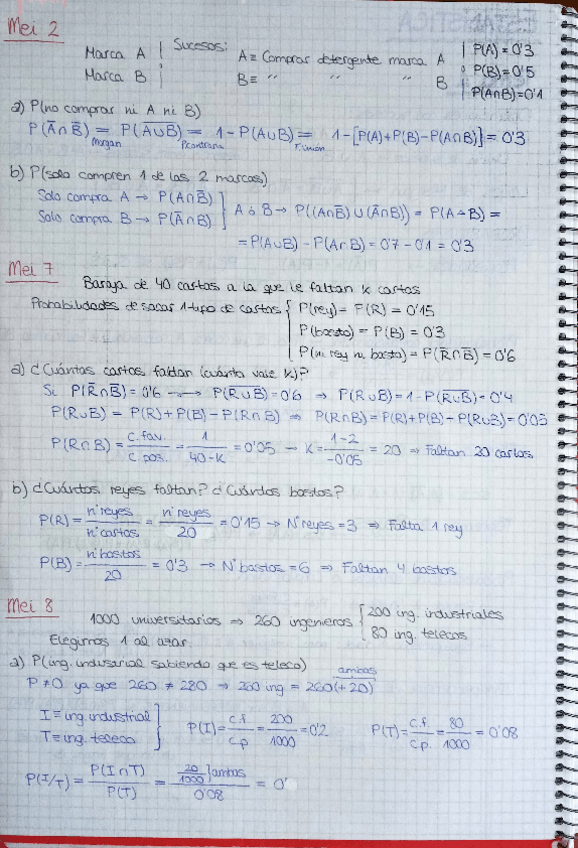 Mei 2
Marca A | Sucesos: A ≡ Comprar detergente marca A | P(A) = 0'3
Marca B | B ≡ " " " B | P(B) = 0'5
P(A∩B) = 0'1
a) P(no comprar ni A ni B)
P(Ā∩B̄) = P(A̅U̅B̅) = 1 - P(AUB) = 1 - [P(A) + P(B) - P(A∩B)] = 0'3
Morgan P.contrario P.unión
b) P(solo compren 1 de las 2 marcas)
Solo compra A → P(A∩B̄)
Solo compra B → P(Ā∩B)
A ó B → P((A∩B̄) U (Ā∩B)) = P(A △ B) =
= P(AUB) - P(A∩B) = 0'7 - 0'1 = 0'3
Mei 7
Baraja de 40 cartas a la que le faltan k cartas
Probabilidades de sacar 1 tipo de cartas { P(rey) = P(R) = 0'15
P(basto) = P(B) = 0'3
P(ni rey ni basto) = P(R̄∩B̄) = 0'6
a) ¿Cuántas cartas faltan (cuánto vale k)?
Si P(R̄∩B̄) = 0'6 → P(R̅U̅B̅) = 0'6 ⇒ P(RUB) = 1 - P(R̅U̅B̅) = 0'4
P(RUB) = P(R) + P(B) - P(R∩B) ⇒ P(R∩B) = P(R) + P(B) - P(RUB) = 0'05
P(R∩B) = c.fav. / c.pos. = 1 / 40-K = 0'05 → K = 1-2 / -0'05 = 20 ⇒ Faltan 20 cartas
b) ¿Cuántos reyes faltan? ¿Cuántos bastos?
P(R) = nº reyes / nº cartas = nº reyes / 20 = 0'15 → Nº reyes = 3 ⇒ Falta 1 rey
P(B) = nº bastos / 20 = 0'3 → Nº bastos = 6 ⇒ Faltan 4 bastos
Mei 8
1000 universitarios ⇒ 260 ingenieros { 200 ing. industriales
80 ing. telecos
Elegimos 1 al azar
a) P(ing. indusarial sabiendo que es teleco)
P ≠ 0 ya que 260 ≠ 280 ⇒ 260 ing = 260 (+20)
ambas
I ≡ ing. industrial
T ≡ ing. teleco
P(I) = c.f / c.p = 200 / 1000 = 0'2 P(T) = c.f / c.p. = 80 / 1000 = 0'08
P(I/T) = P(I∩T) / P(T) = 20/1000 } ambas / 0'08 = 0'